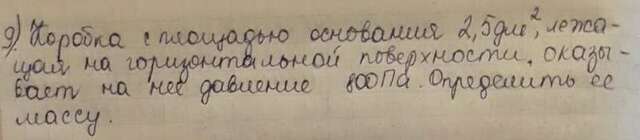 9) Коробка с площадью основания 2,5дм², лежа-
щая на горизонтальной поверхности, оказы-
вает на неё давление 800Па. Определить ее
массу.